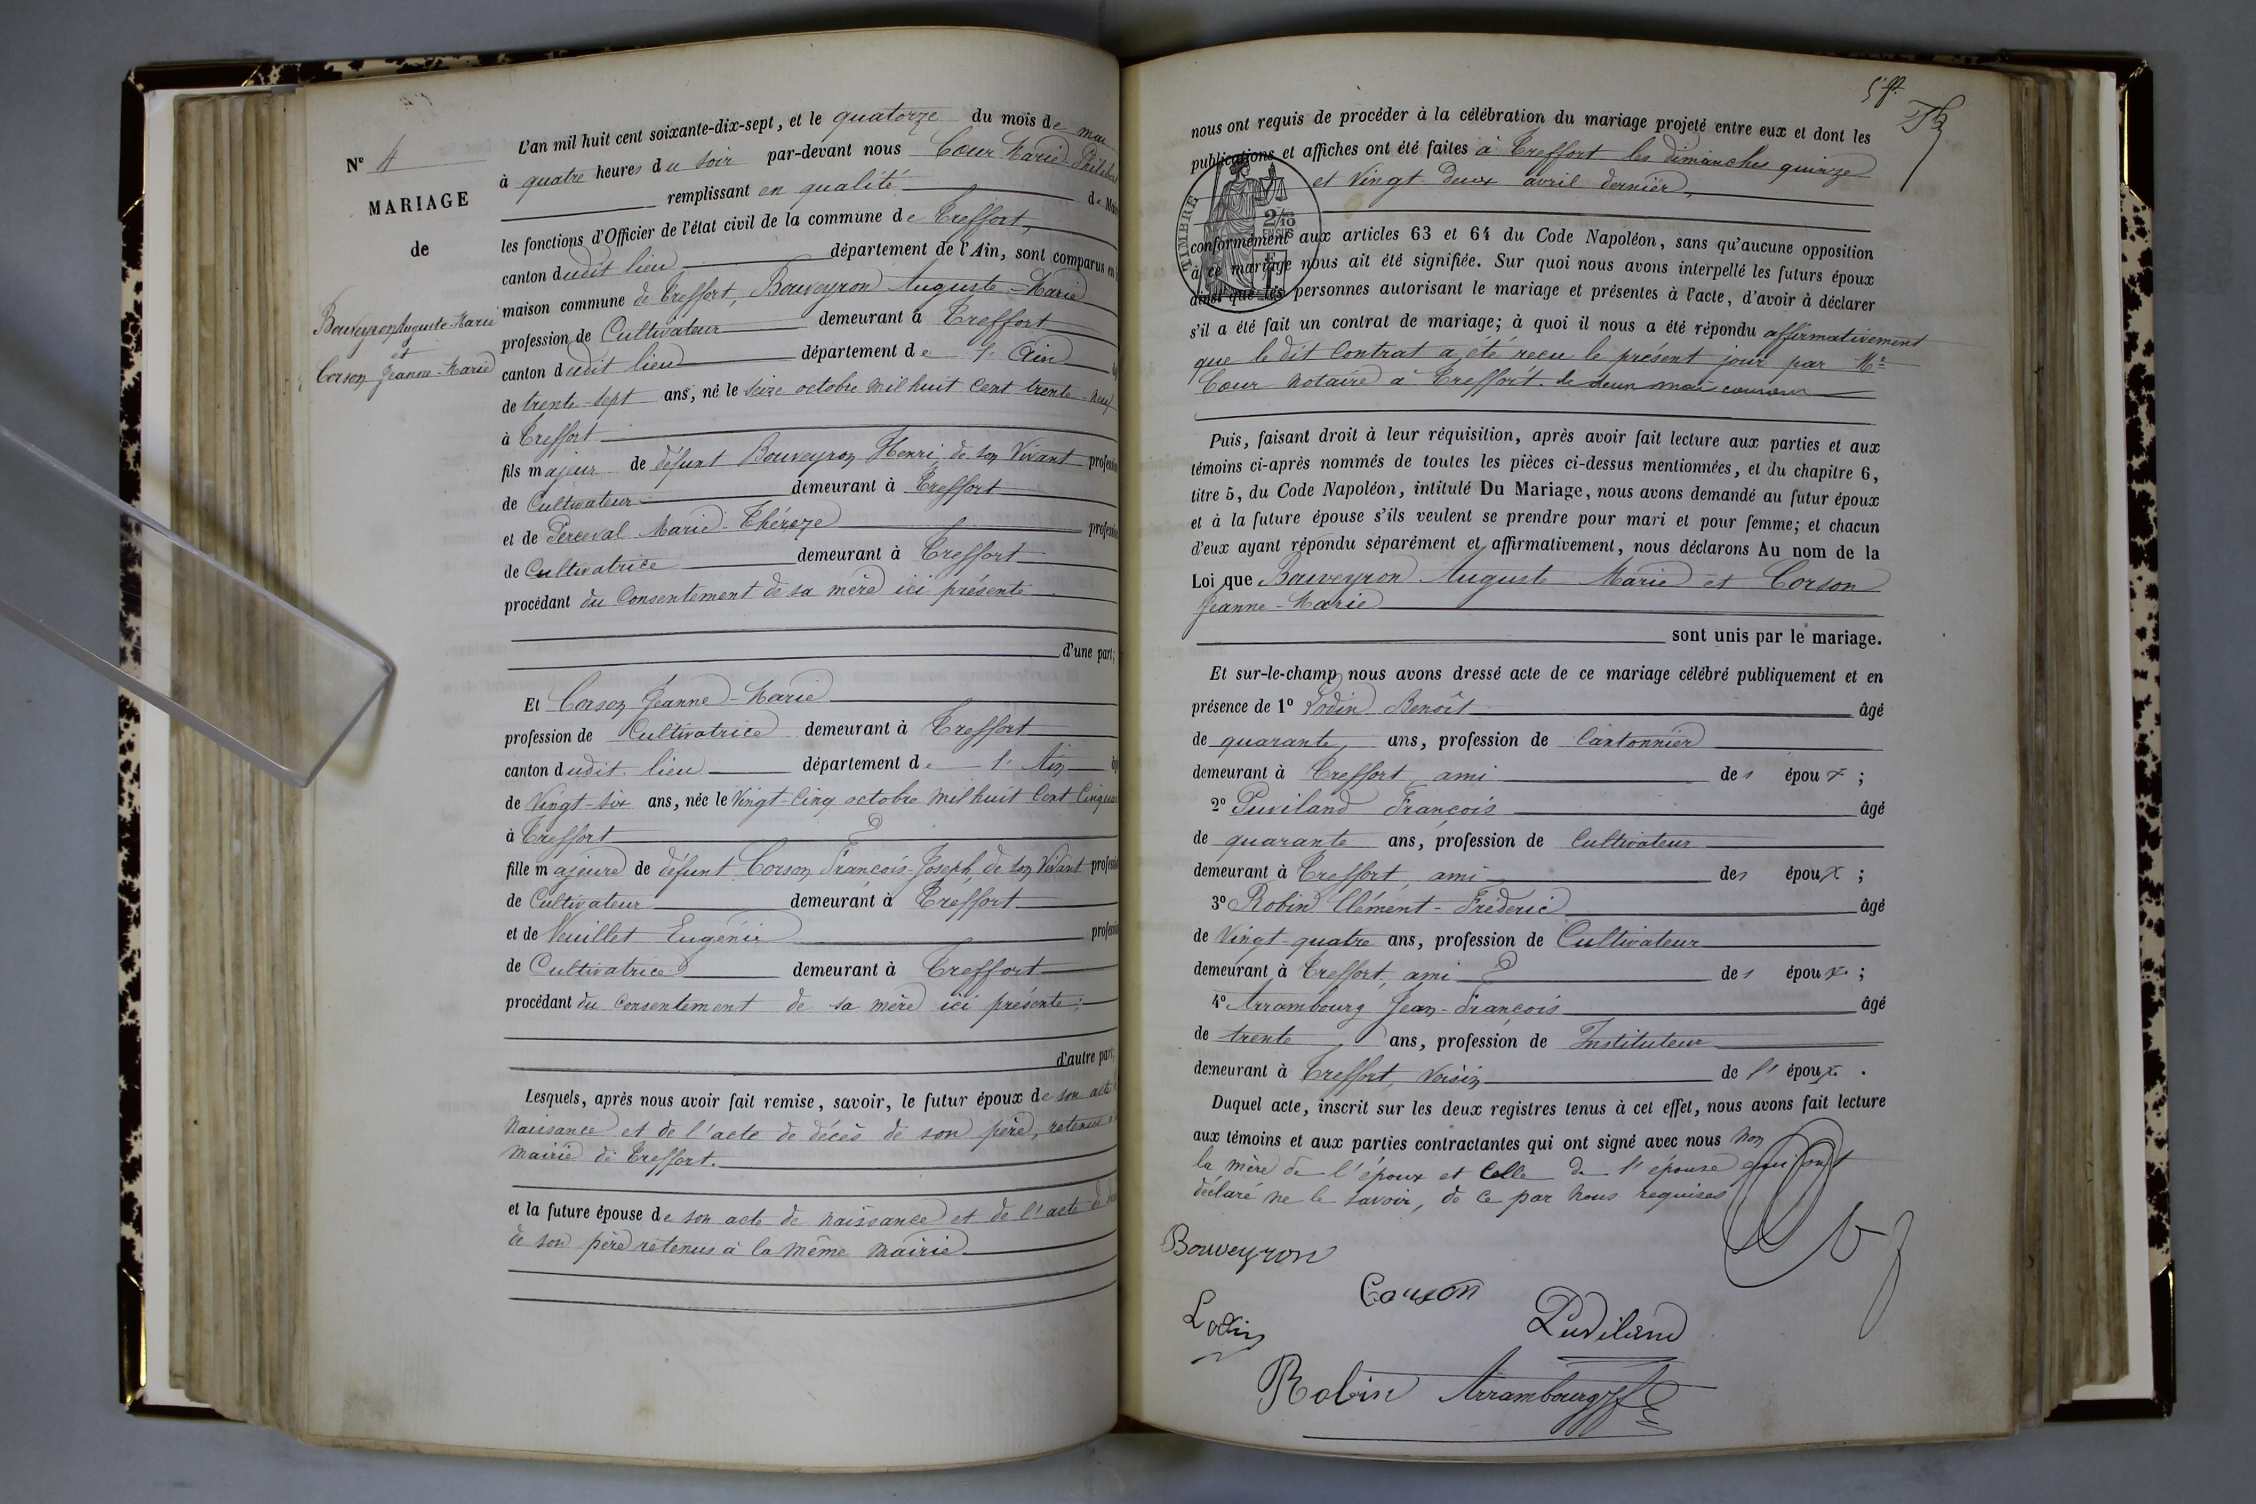 N° 4
MARIAGE
de
Bouveyron Auguste-Marie
et
Corson Jeanne-Marie
L'an mil huit cent soixante-dix-sept, et le quatorze du mois de mai
à quatre heures du soir par-devant nous Cœur Marie-Philibert
remplissant en qualité de
les fonctions d'Officier de l'état civil de la commune de Treffort,
canton dudit lieu département de l'Ain, sont comparus en
maison commune de Treffort, Bouveyron Auguste-Marie
profession de Cultivateur demeurant à Treffort
canton dudit lieu département de l'Ain
de trente-sept ans, né le seize octobre mil huit cent trente-neuf
à Treffort
fils majeur de défunt Bouveyron Henri de son vivant
de Cultivateur demeurant à Treffort
et de Perceval Marie-Thérèze
de Cultivatrice demeurant à Treffort
procédant du consentement de sa mère ici présente
d'une part;
Et Corson Jeanne-Marie
profession de Cultivatrice demeurant à Treffort
canton dudit lieu département de l'Ain
de vingt-six ans, née le vingt-cinq octobre mil huit cent
à Treffort
fille majeure de défunt Corson François-Joseph, de son vivant
de Cultivateur demeurant à Treffort
et de Veuillet Eugénie
de Cultivatrice demeurant à Treffort
procédant du consentement de sa mère ici présente;
d'autre part;
Lesquels, après nous avoir fait remise, savoir, le futur époux de son acte
naissance et de l'acte de décès de son père, retenus
mairie de Treffort.
et la future épouse de son acte de naissance et de l'acte de
de son père retenus à la même mairie
nous ont requis de procéder à la célébration du mariage projeté entre eux et dont les
publications et affiches ont été faites à Treffort les dimanches quinze
et vingt-deux avril dernier,
TIMBRE
2/10
EN SUS
conformément aux articles 63 et 64 du Code Napoléon, sans qu'aucune opposition
à ce mariage nous ait été signifiée. Sur quoi nous avons interpellé les futurs époux
ainsi que les personnes autorisant le mariage et présentes à l'acte, d'avoir à déclarer
s'il a été fait un contrat de mariage; à quoi il nous a été répondu affirmativement
que le dit contrat a été reçu le présent jour par Me
Cœur notaire à Treffort. le deux mai courant
Puis, faisant droit à leur réquisition, après avoir fait lecture aux parties et aux
témoins ci-après nommés de toutes les pièces ci-dessus mentionnées, et du chapitre 6,
titre 5, du Code Napoléon, intitulé Du Mariage, nous avons demandé au futur époux
et à la future épouse s'ils veulent se prendre pour mari et pour femme; et chacun
d'eux ayant répondu séparément et affirmativement, nous déclarons Au nom de la
Loi que Bouveyron Auguste Marie et Corson
Jeanne-Marie
sont unis par le mariage.
Et sur-le-champ nous avons dressé acte de ce mariage célébré publiquement et en
présence de 1° Lodin Benoît âgé
de quarante ans, profession de Cantonnier
demeurant à Treffort, ami des époux;
2° Puviland François âgé
de quarante ans, profession de Cultivateur
demeurant à Treffort, ami des époux;
3° Robin Clément-Fréderic âgé
de vingt-quatre ans, profession de Cultivateur
demeurant à Treffort, ami des époux;
4° Arrambourg Jean-François âgé
de trente ans, profession de Instituteur
demeurant à Treffort, voisin de l'époux.
Duquel acte, inscrit sur les deux registres tenus à cet effet, nous avons fait lecture
aux témoins et aux parties contractantes qui ont signé avec nous non
la mère de l'époux et celle de l'épouse qui ont
déclaré ne le savoir, de ce par nous requises
Bouveyron
Corson
Lodin
Puviland
Robin Arrambourg